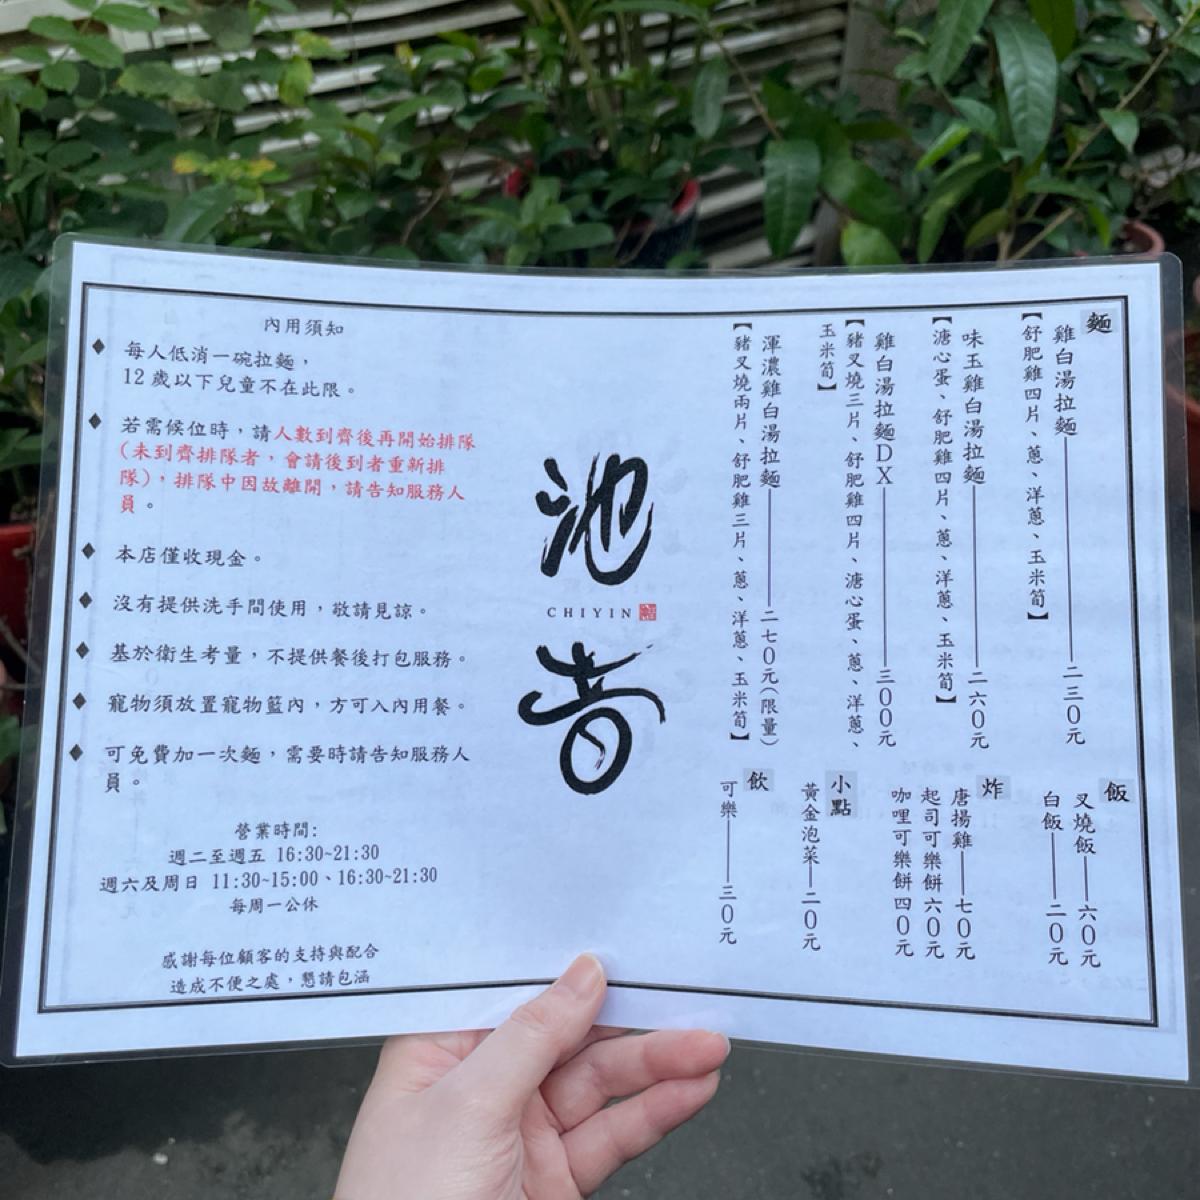 麵
雞白湯拉麵——二三0元
【舒肥雞四片、蔥、洋蔥、玉米筍】
味玉雞白湯拉麵——二六0元
【溏心蛋、舒肥雞四片、蔥、洋蔥、玉米筍】
雞白湯拉麵DX——三00元
【豬叉燒三片、舒肥雞四片、溏心蛋、蔥、洋蔥、
玉米筍】
渾濃雞白湯拉麵——二七0元(限量)
【豬叉燒兩片、舒肥雞三片、蔥、洋蔥、玉米筍】
飯
叉燒飯——六0元
白飯——二0元
炸
唐揚雞——七0元
起司可樂餅六0元
咖哩可樂餅四0元
小點
黃金泡菜—二0元
飲
可樂——三0元
池
CHIYIN
音
內用須知
◆ 每人低消一碗拉麵，
12歲以下兒童不在此限。
◆ 若需候位時，請人數到齊後再開始排隊
(未到齊排隊者，會請後到者重新排
隊)，排隊中因故離開，請告知服務人
員。
◆ 本店僅收現金。
◆ 沒有提供洗手間使用，敬請見諒。
◆ 基於衛生考量，不提供餐後打包服務。
◆ 寵物須放置寵物籃內，方可入內用餐。
◆ 可免費加一次麵，需要時請告知服務人
員。
營業時間:
週二至週五 16:30~21:30
週六及周日 11:30~15:00、16:30~21:30
每周一公休
感謝每位顧客的支持與配合
造成不便之處，懇請包涵